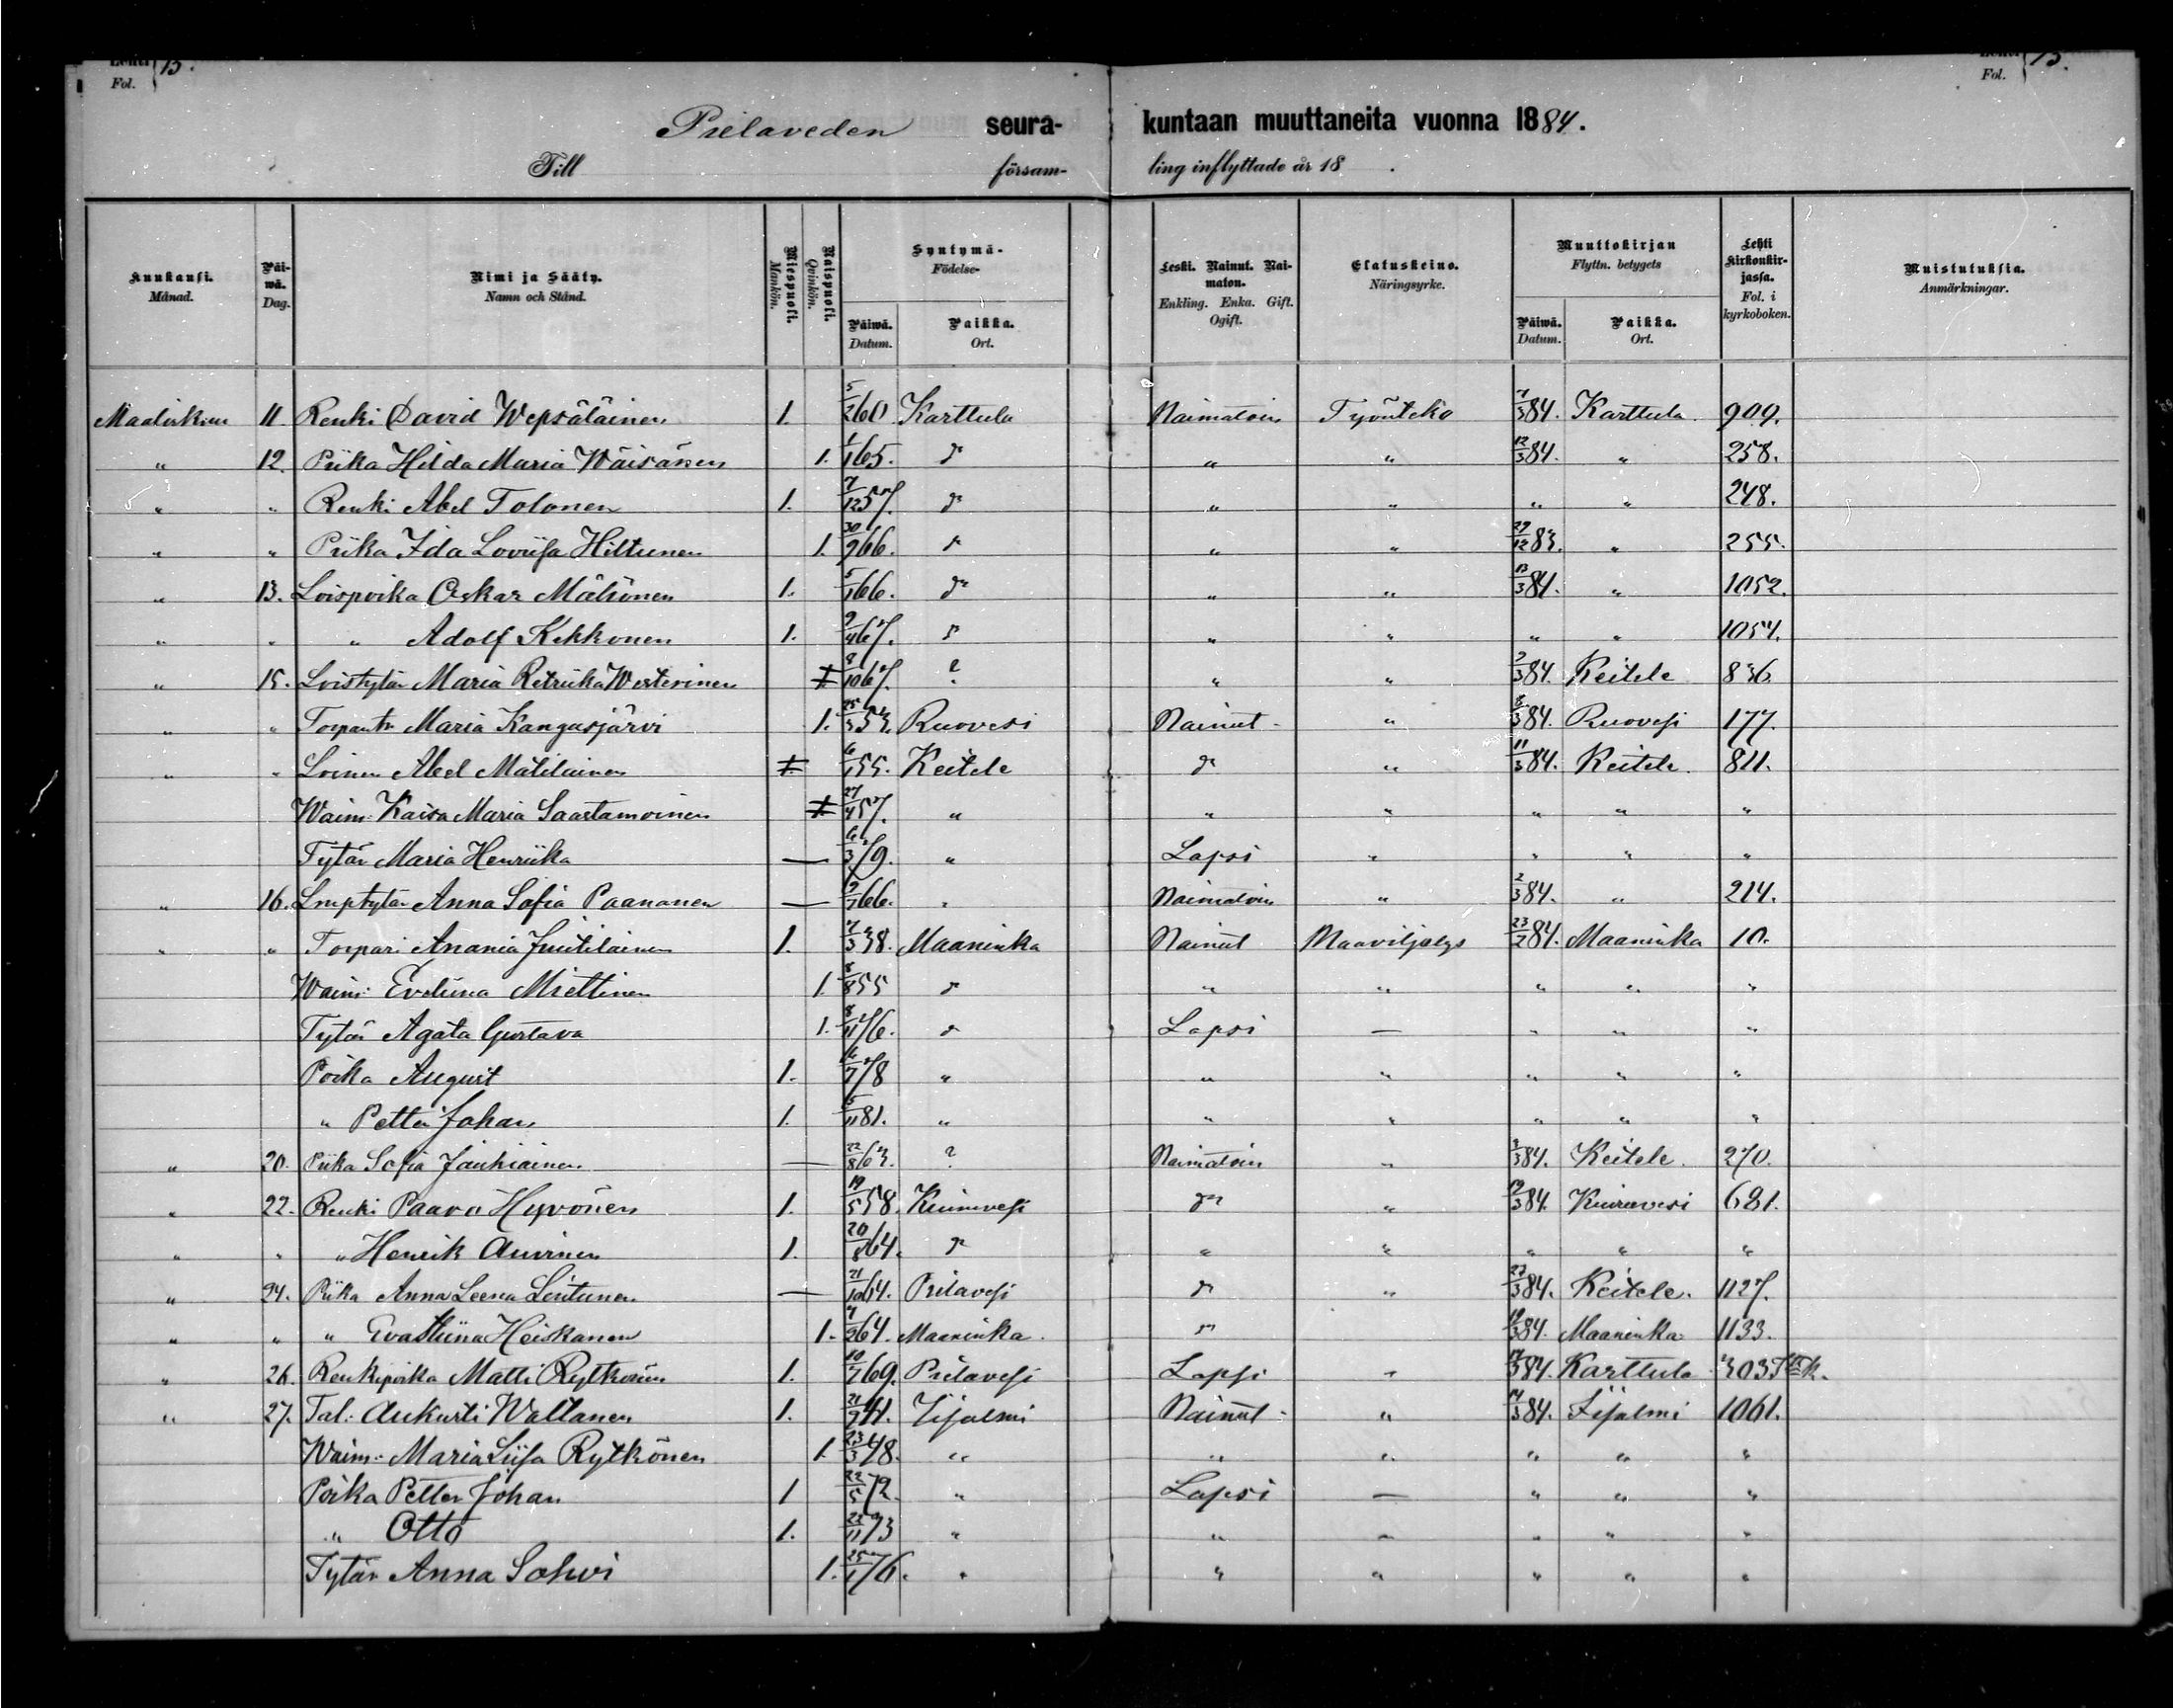 Lehti 13. Lehti 13.
Fol. Fol.
Pielaveden seura- kuntaan muuttaneita vuonna 1884.
Till försam- ling inflyttade år 18 .
Kuukausi. Månad. Päi-wä. Dag. Nimi ja Sääty. Namn och Stånd. Miespuoli. Mankön. Naispuoli. Qvinkön. Syntymä- Födelse- Päiwä. Datum. Paikka. Ort. Leski. Nainut. Nai-maton. Enkling. Enka. Gift. Ogift. Elatuskeino. Näringsyrke. Muuttokirjan Flyttn. betygets Päiwä. Datum. Paikka. Ort. Lehti Kirkonkir-jassa. Fol. i kyrkoboken. Muistutuksia. Anmärkningar.
Maaliskuu 11. Renki David Wepsäläinen 1. 5/2 60. Karttula Naimatoin Työnteko 7/3 84. Karttula 909.
" 12. Piika Hilda Maria Wäisänen 1. 1/1 65. d:o " " 12/3 84. " 258.
" " Renki Abel Tolonen 1. 7/12 57. d:o " " " " 248.
" " Piika Ida Loviisa Hiltunen 1. 30/9 66. d:o " " 29/12 83. " 255.
" 13. Loispoika Oskar Mähönen 1. 5/1 66. d:o " " 13/3 84. " 1052.
" " " Adolf Kekkonen 1. 9/4 67. d:o " " " " 1054.
" 15. Loistytär Maria Retriika Westerinen 1. 8/10 67. ? " " 7/3 84. Keitele 836.
" " Torpantr Maria Kangasjärvi 1. 25/3 53. Ruovesi Nainut " 8/3 84. Ruovesi 177.
" " Loinen Abel Matilainen 1. 6/1 55. Keitele d:o " 11/3 84. Keitele 811.
Waim: Kaisa Maria Saastamoinen 1. 27/4 57. " " " " " "
Tytär Maria Henriika — 6/3 79. " Lapsi " " " "
" 16. Anna Sofia Paananen — 9/7 66. " Naimatoin " 2/3 84. " 214.
" " Torpari Anania Juutilainen 1. 7/3 38. Maaninka Nainut Maaviljelys 23/2 84. Maaninka 10.
Waim: Eveliina Miettinen 1. 8/8 55 d:o " " " " "
Tytär Agata Gustava 1. 8/11 76. d:o Lapsi — " " "
Poika August 1. 6/7 78 " " " " " "
" Petter Johan 1. 5/11 81. " " " " " "
" 20. Piika Sofia Jauhiainen — 22/8 63. ? Naimatoin " 3/3 84. Keitele 270.
" 22. Renki Paavo Hyvönen 1. 19/5 58. Kiuruvesi d:o " 19/3 84. Kiuruvesi 681.
" " " Henrik Auvinen 1. 20/8 64. d:o " " " " "
" 24. Piika Anna Leena Lintunen — 21/10 64. Pielavesi d:o " 23/3 84. Keitele. 1127.
" " " Eva Stiina Heiskanen 1. 7/2 64. Maaninka d:o 18/3 84. Maaninka 1133.
" 26. Renkipoika Matti Rytkönen 1. 10/7 69. Pielavesi Lapsi " 17/3 84. Karttula 303
" 27. Tal: Aukusti Waltanen 1. 21/9 41. Iisalmi Nainut " 14/3 84. Iisalmi 1061.
Waim: Maria Liisa Rytkönen 1. 23/3 48. " " " " " "
Poika Petter Johan 1 22/5 72. " Lapsi — " " "
" Otto 1. 22/11 73 " " " " " "
Tytär Anna Sohvi 1. 25/1 76. " " " " " "